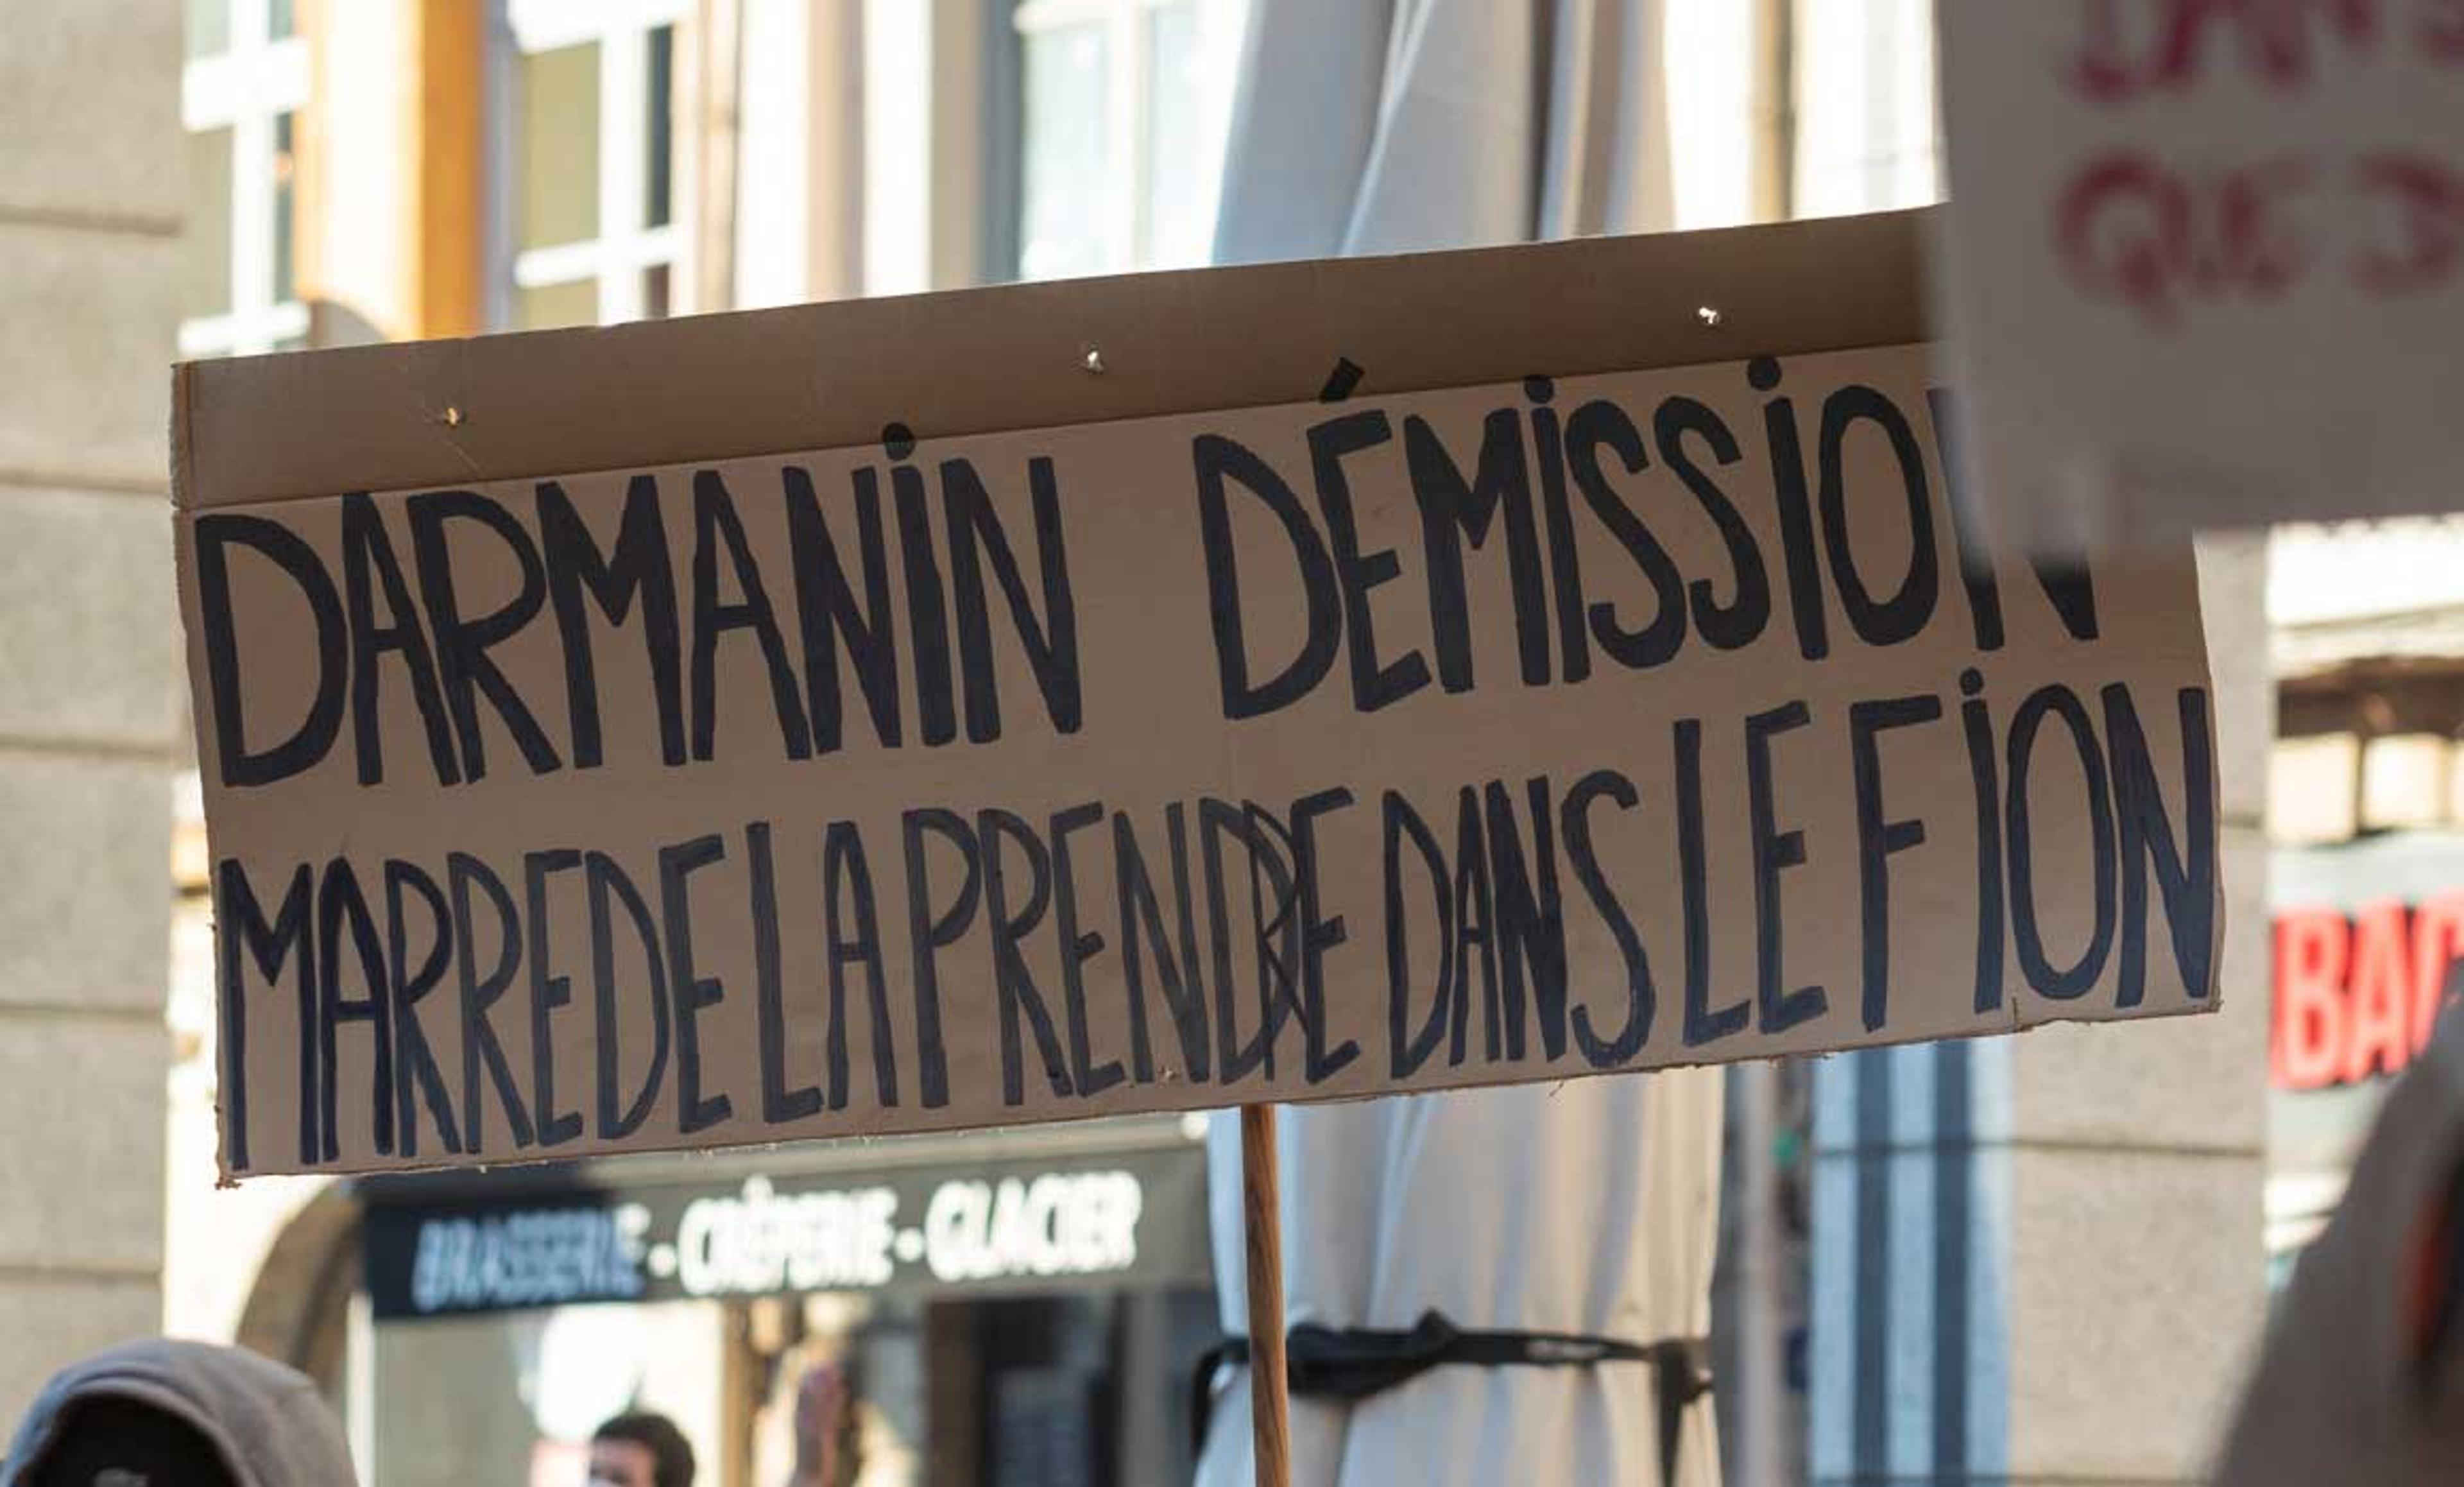 DARMANIN DÉMISSION
MARRE DE LA PRENDRE DANS LE FION
BRASSERIE - CRÊPERIE - GLACIER